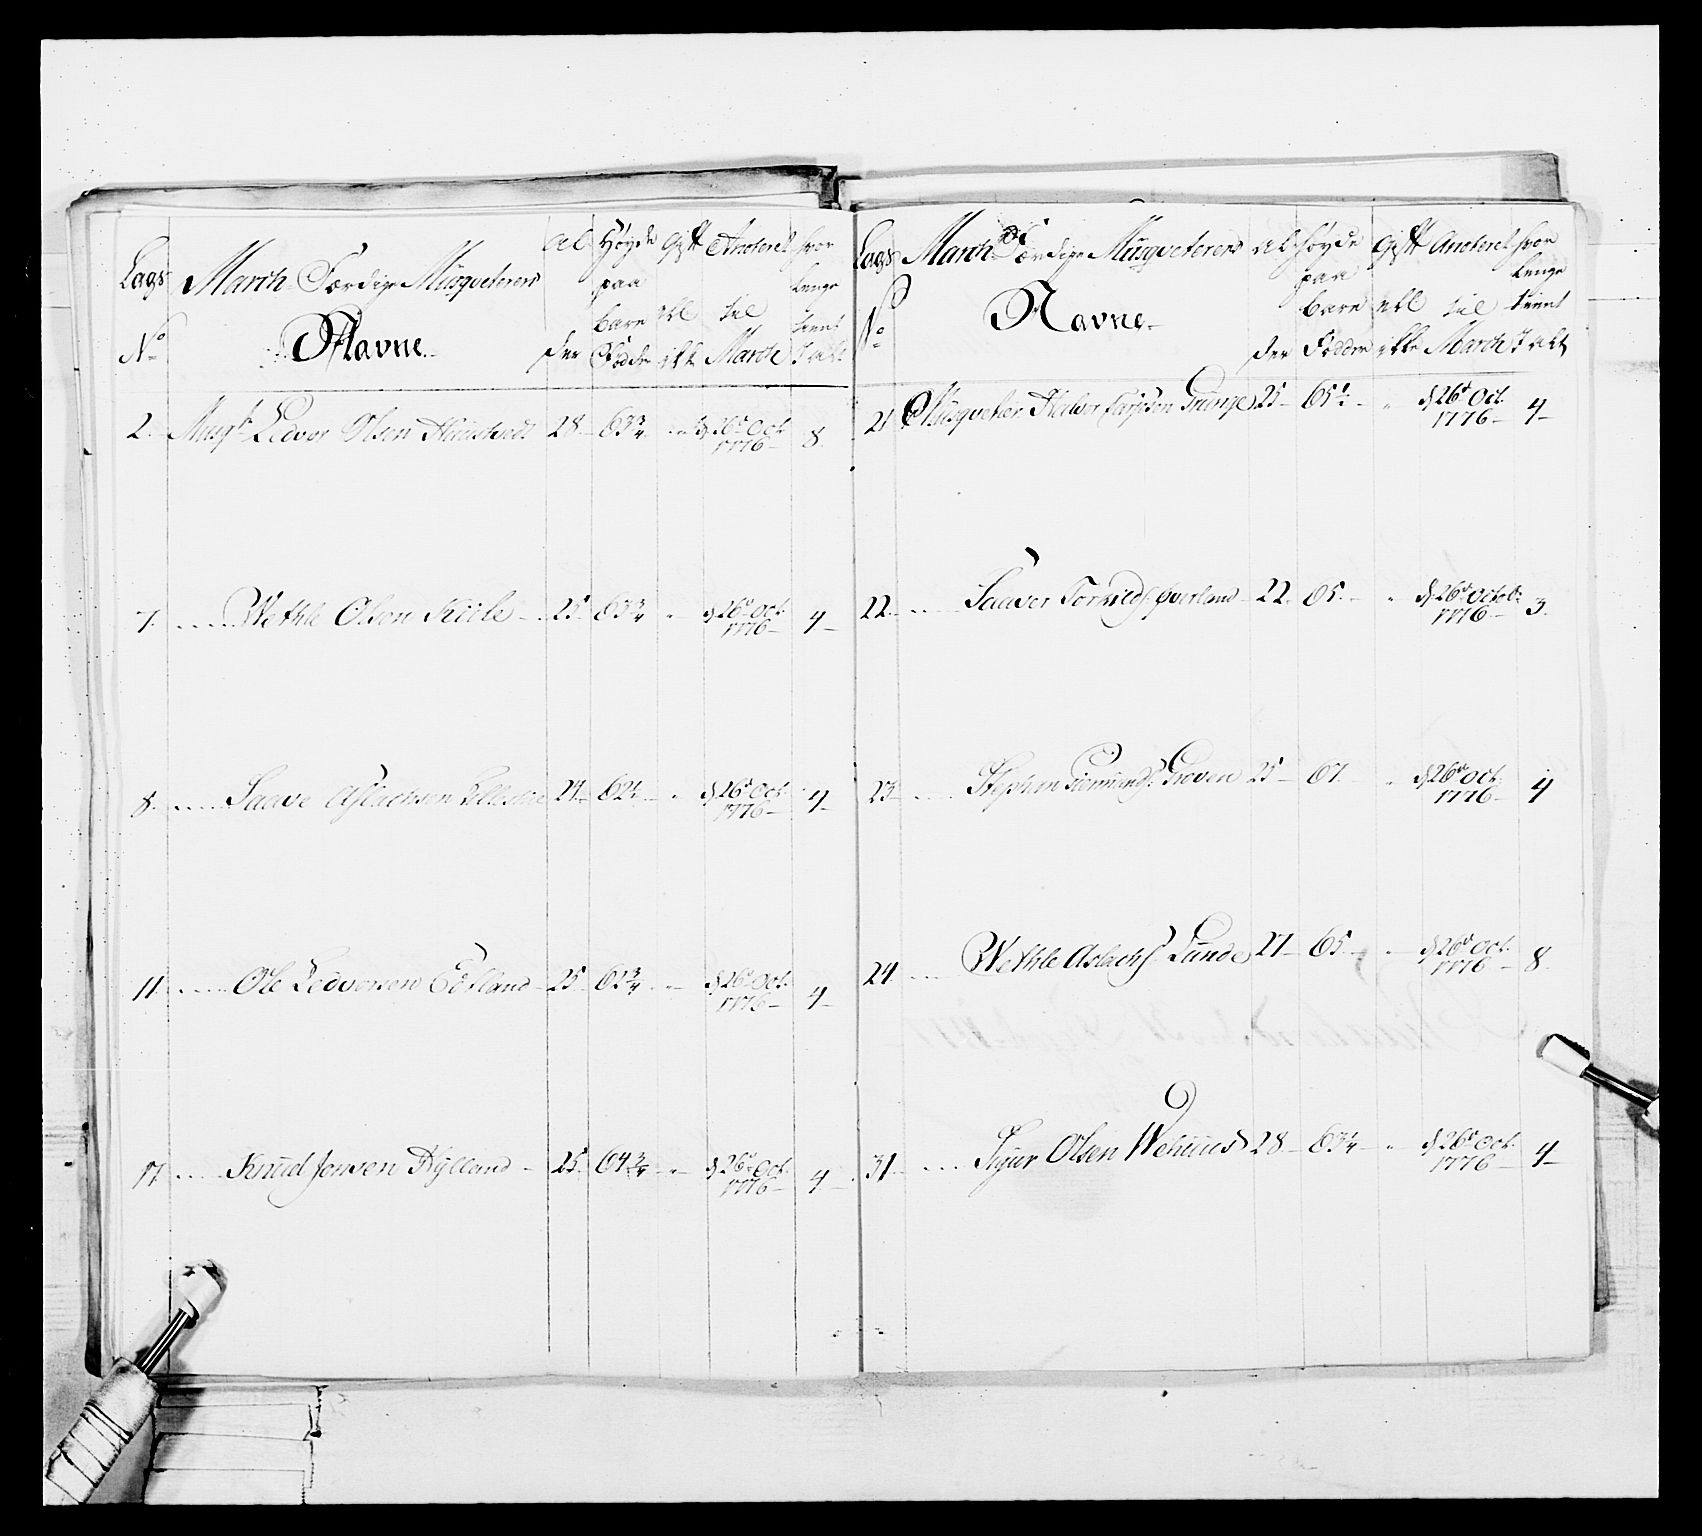 Lags No March Færdige Musqveterers Navne. Alder Høyde paa bare Fødder Gift ell ikke Anoteret til March hvor lenge tient I alt
2. Musqr Ledvor Olsen 28 63 3/4 d 26de Oct. 1776 8
7. Wethle Olsen Kiile 25 63 3/4 " d 26de Oct. 1776 4
8. Saave Aslachsen 27 62 1/2 " d 26de Oct. 1776 4
11. Ole Ledvorsen Edland 25 62 3/4 " d 26de Oct. 1776 4
17. Knud Jensen Hylland 25 64 3/4 " d 26de Oct. 1776 4
Lags No March Færdige Musqveterers Navne. Alder Høyde paa bare Fødder Gift ell ikke Anoteret til March hvor lenge tient I alt
21 Musqveter Halvor Grunge 25 65 1/2 " d 26de Oct. 1776 4
22. Saaver Torkilds: Øverland 22 65 " d 26de Octob: 1776 3.
23. Stephen Groven 25 67 " d 26de Oct. 1776 4
24. Wethle Aslachs: Lunde 27 65 " d 26de Oct. 1776 8
31. Sigur Olsen Wehuus 28 63 1/4 " d 26de Oct. 1776 4